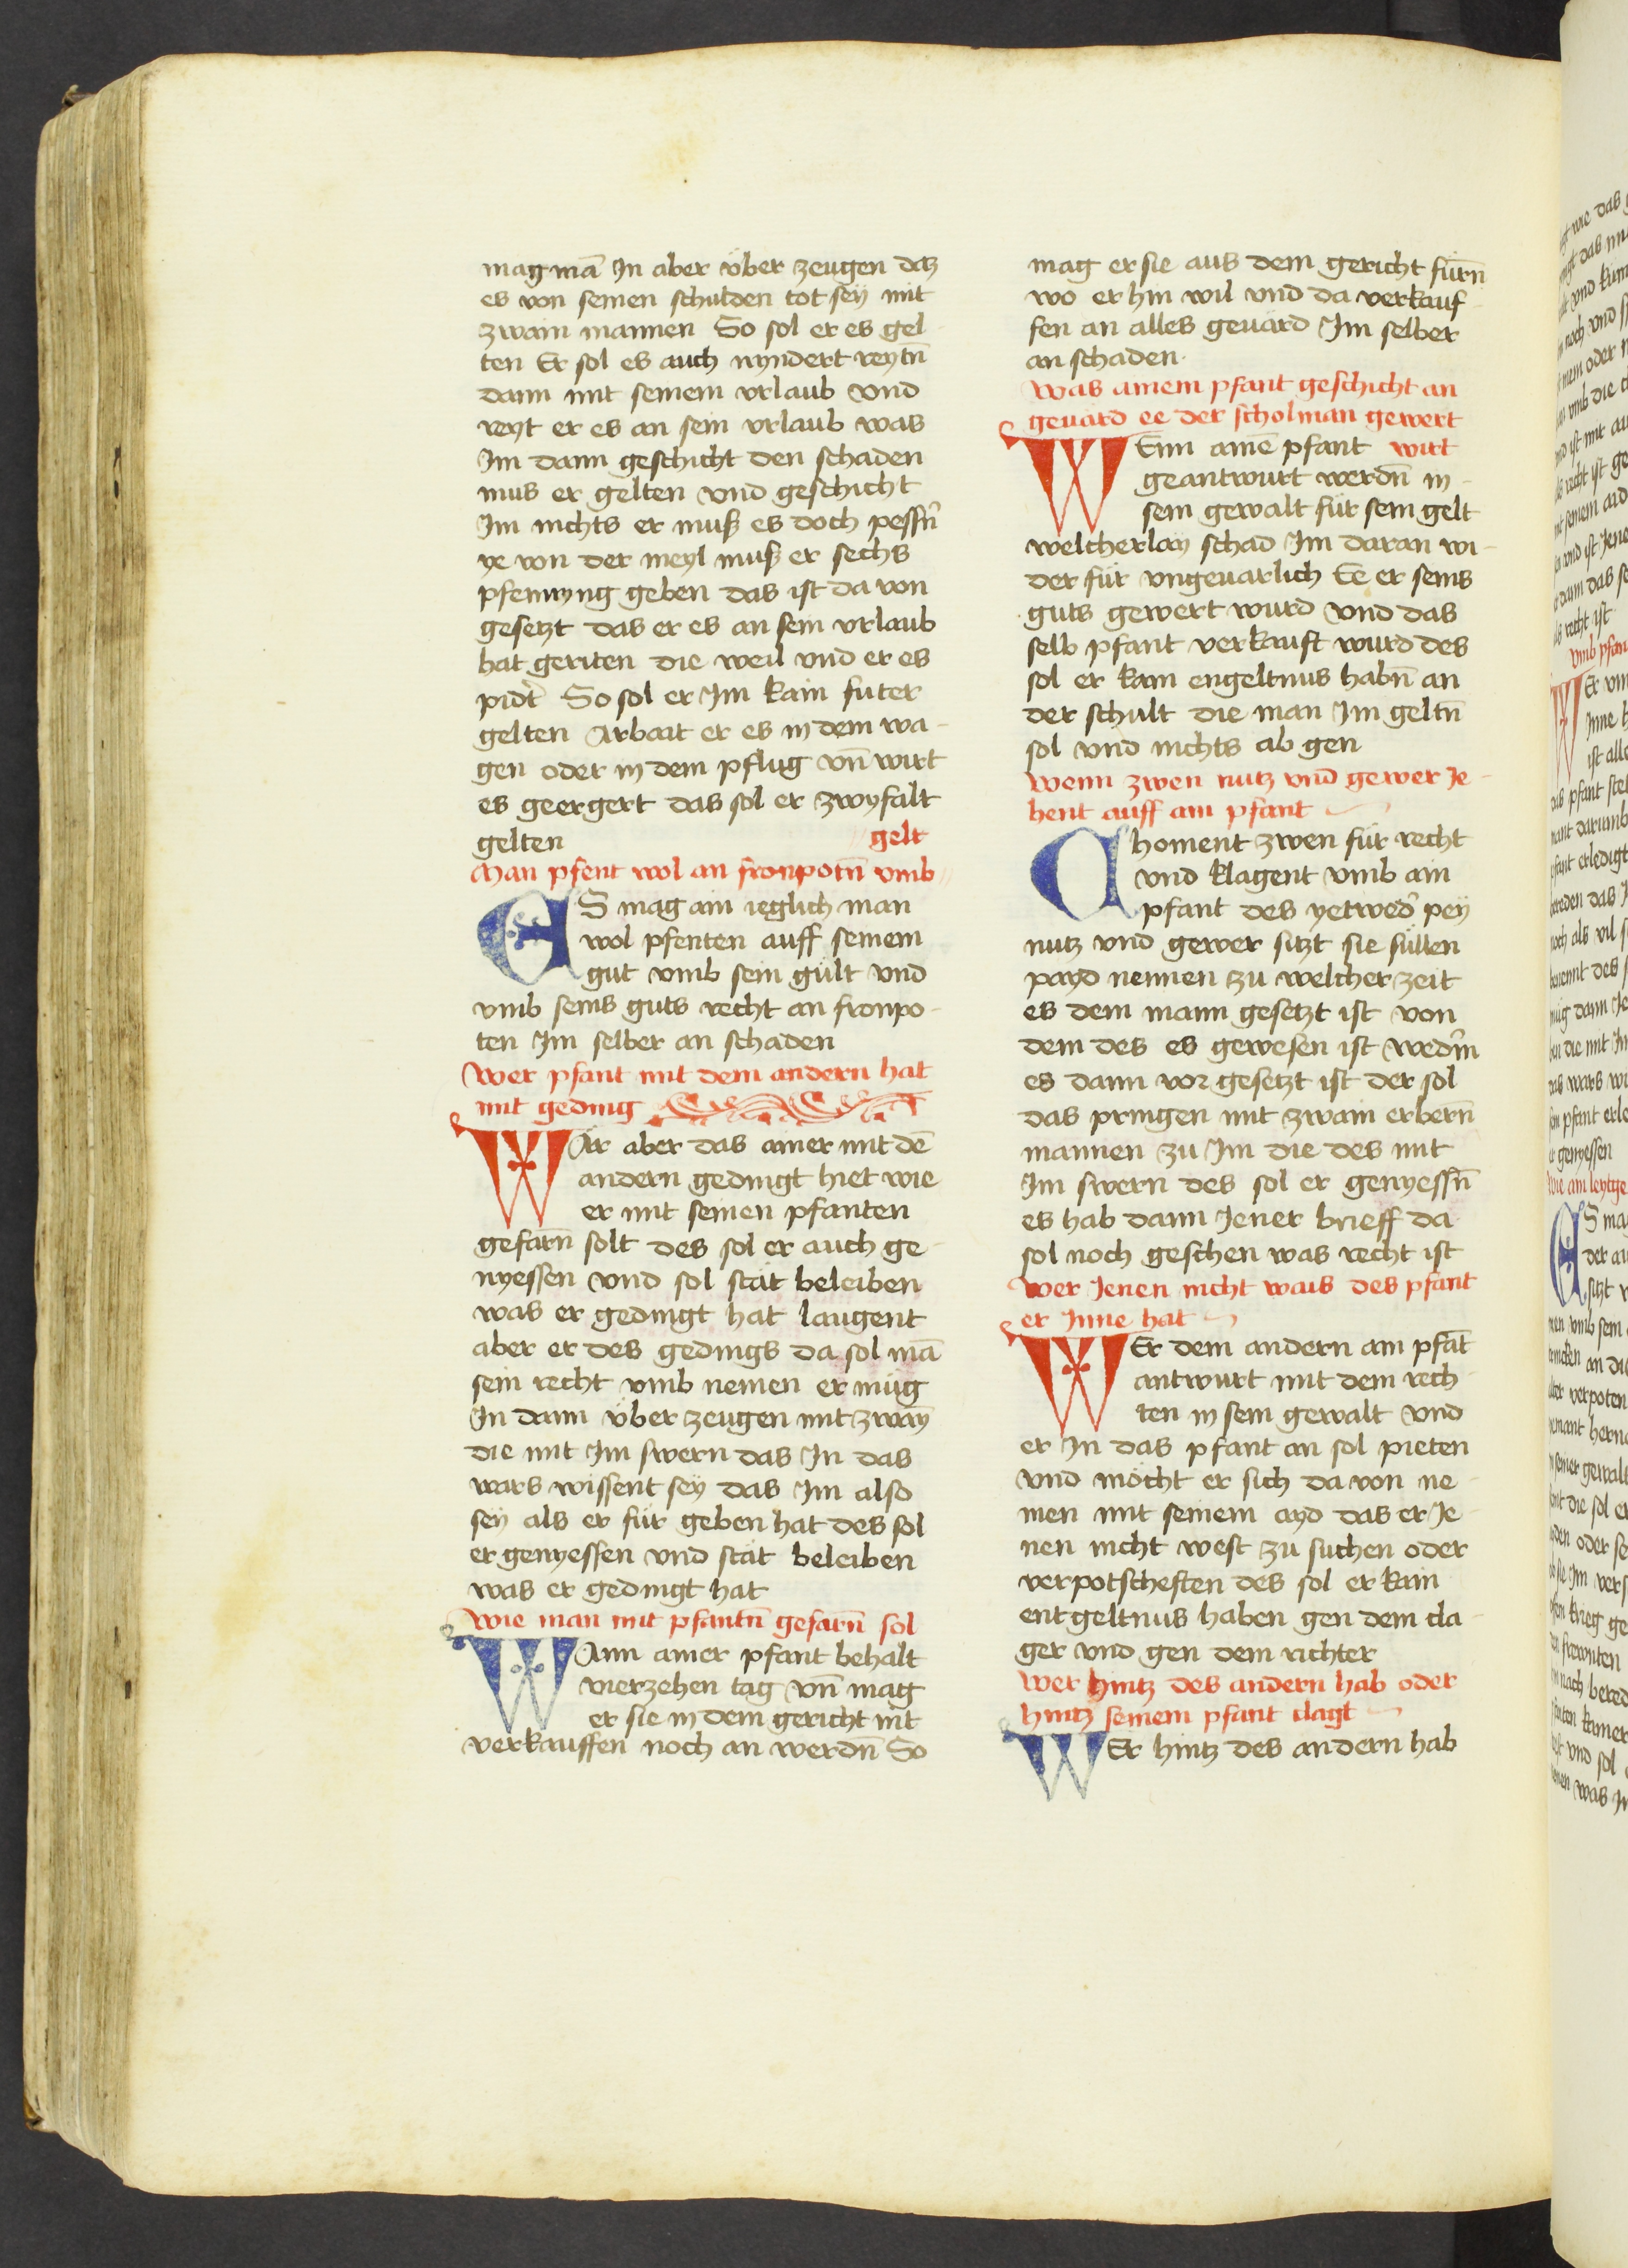 mag mā In aber über zeugen daz
es von seinen schulden tot sey mit
zwain mannen So sol er es gel
ten Er sol es auch nyndert reytn̄
dann mit seinem vrlaub vnd
reyt er es an sein vrlaub was
Im dann geschicht den schaden
mus er gelten vnd geschicht
Im nichts er muß es doch pessn̄
ye von der meyl muß er sechs
pfennyng geben das ist da von
gesetzt das er es an sein vrlaub
hat geriten die weil vnd er es
So sol er Im kain futer
gelten Arbait er es in dem wa-
gen oder in dem pflug vn̄ wirt
es geergert das sol er zwyfalt
gelten gelt
Man pfent wol an fronpotn̄ vmb
ES mag ain ieglich man
wol pfenten auff seinem
gut vmb sein gült vnd
vmb seins guts recht an fronpo-
ten Im selber an schaden
Wer pfant mit dem andern hat
mit geding
WÄr aber das ainer mit dē
andern gedingt hiet wie
er mit seinen pfanten
gefarn̄ solt des sol er auch ge-
nyessen vnd sol stät beleiben
was er gedingt hat laugent
aber er des gedings da sol mā
sein recht vmb nemen er müg
In dann über zeugen mit zwayn
die mit Im swern das In das
wars wissent sey das Im also
sey als er für geben hat des sol
er genyessen vnd stät beleiben
was er gedingt hat
Wie man mit pfantn̄ gefarn̄ sol
WAnn ainer pfant behalt
vierzehen tag vn̄ mag
er sie in dem gericht nit
verkauffen noch an werdn̄ So
mag er sie aus dem gericht fürn̄
wo er hin wil vnd da verkauf-
fen an alles geuärd Im selber
an schaden.
Was ainem pfant geschicht an
geuärd ee der scholman gewert
WEnn ainē pfant wirt
geantwurt werdn̄ in-
sein gewalt für sein gelt
welcherlay schad Im daran wi-
der für vngeuarlich Ee er seins
guts gewert wurd vnd das
selb pfant verkauft wurd des
sol er kain engeltnus habn̄ an
der schult die man Im geltn̄
sol vnd nichts ab gen
Wenn zwen nutz vnd gewer Je-
hent auff ain pfant
Choment zwen für recht
vnd klagent vmb ain
pfant des yetwed' pey
nutz vnd gewer sitzt sie süllen
payd nennen zu welcher zeit
es dem mann gesetzt ist von
dem des es gewesen ist wed'm
es dann vor gesetzt ist der sol
das pringen mit zwain erbern̄
mannen zu Im die des mit
Im swern des sol er genyessn̄
es hab dann Jener brieff da
sol noch geschen was recht ist
Wer Jenen nicht wais des pfant
er Inne hat
WEr dem andern ain pfāt
antwurt mit dem rech
ten in sein gewalt vnd
er In das pfant an sol pieten
vnd möcht er sich da von ne-
men mit seinem ayd das er Je-
nen nicht west zu suchen oder
verpotscheften des sol er kain
entgeltnus haben gen dem cla
ger vnd gen dem richter
Wer hintz des andern hab oder
hintz seinem pfant clagt
WEr hintz des andern hab